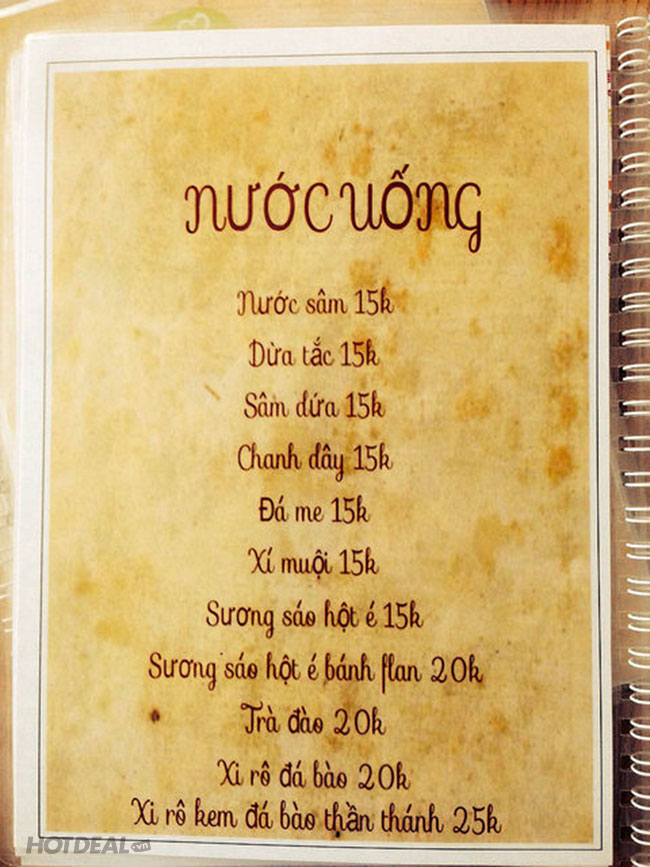 NƯỚC UỐNG
Nước sâm 15k
Dừa tắc 15k
Sâm dứa 15k
Chanh dây 15k
Đá me 15k
Xí muội 15k
Sương sáo hột é 15k
Sương sáo hột é bánh flan 20k
Trà đào 20k
Xi rô đá bào 20k
Xi rô kem đá bào thần thánh 25k
HOTDEAL.vn